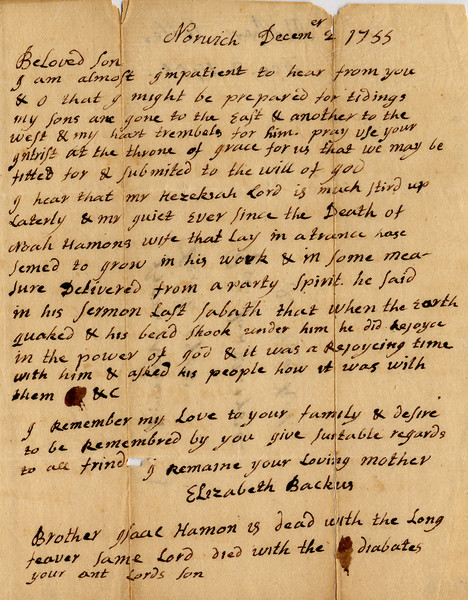 Norwich Decem er 2 1755
Beloved Son
I am almost impatient to hear from you
& O that I might be prepared for tidings
my sons are gone to the East & another to the
west & my hart trembels for him. pray use your
intrist at the throne of grace for us that we may be
fitted for & submited to the will of god
I hear that mr Hezekiah Lord is much stird up
Laterly & mr quiet Ever since the Death of
Noah Hamons wife that Lay in a trance hase
semed to grow in his work & in some mea-
sure Delivered from a party spirit. he said
in his sermon Last sabath that when the Earth
quaked & his bead shook under him he did Rejoyce
in the power of god & it was a Rejoycing time
with him & asked his people how it was with
them & &C
I Remember my Love to your family & desire
to be Remembred by you give suitable regards
to all frind I Remaine your Loving mother
Elizabeth Backus
Brother Isaac Hamon is dead with the Long
feaver same Lord died with the diabates
your ant Lords son